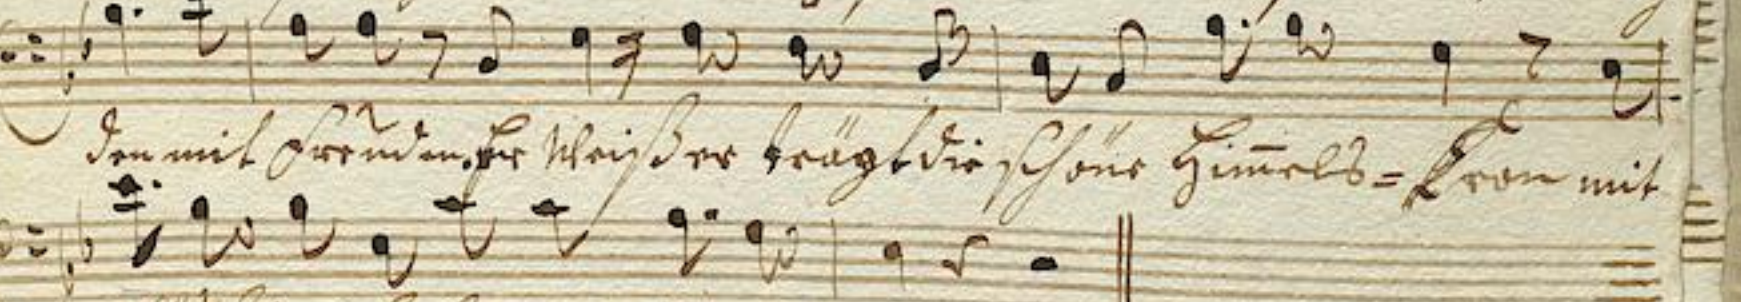 den mit Freuden. Herr Weißer trägt die schöne Him̅els= Kron mit